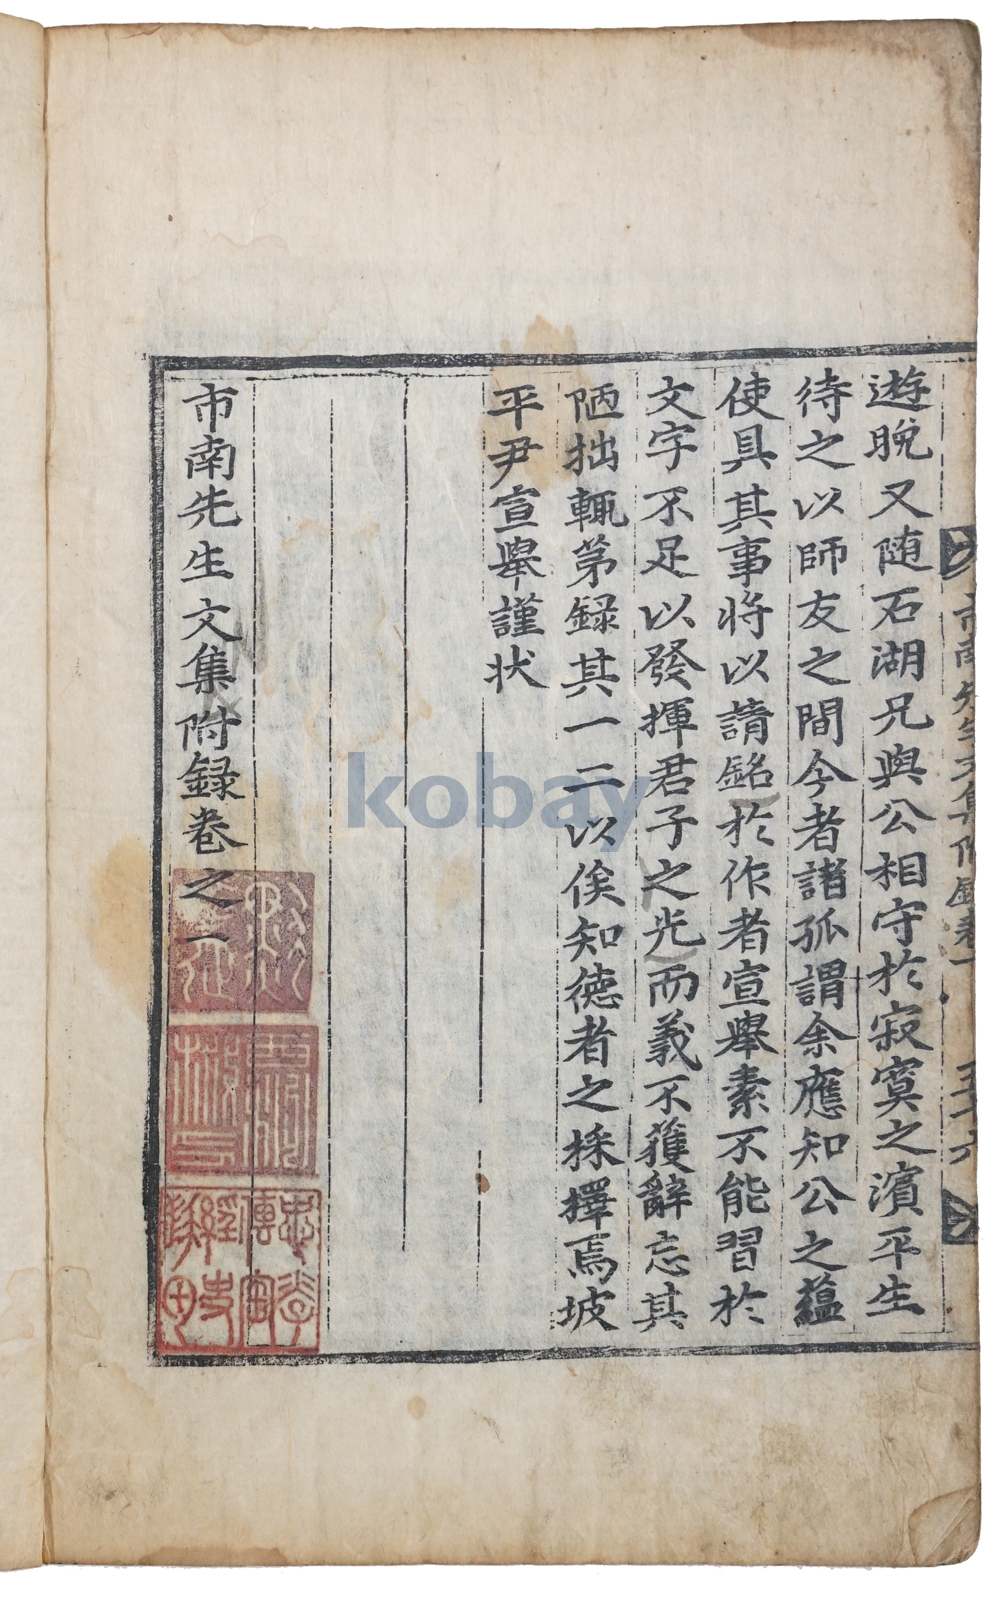 遊晩又随石湖兄與公相守於寂寞之濱平生
待之以師友之間今者諸孤謂余應知公之蘊
使具其事将以請銘於作者宣擧素不能習於
文字不足以發揮君子之光而義不獲辭忘其
陋拙輒苐録其一二以俟知德者之採擇焉坡
平尹宣擧謹状
市南先生文集附録卷之一
忠孝傳家
經史
kobay